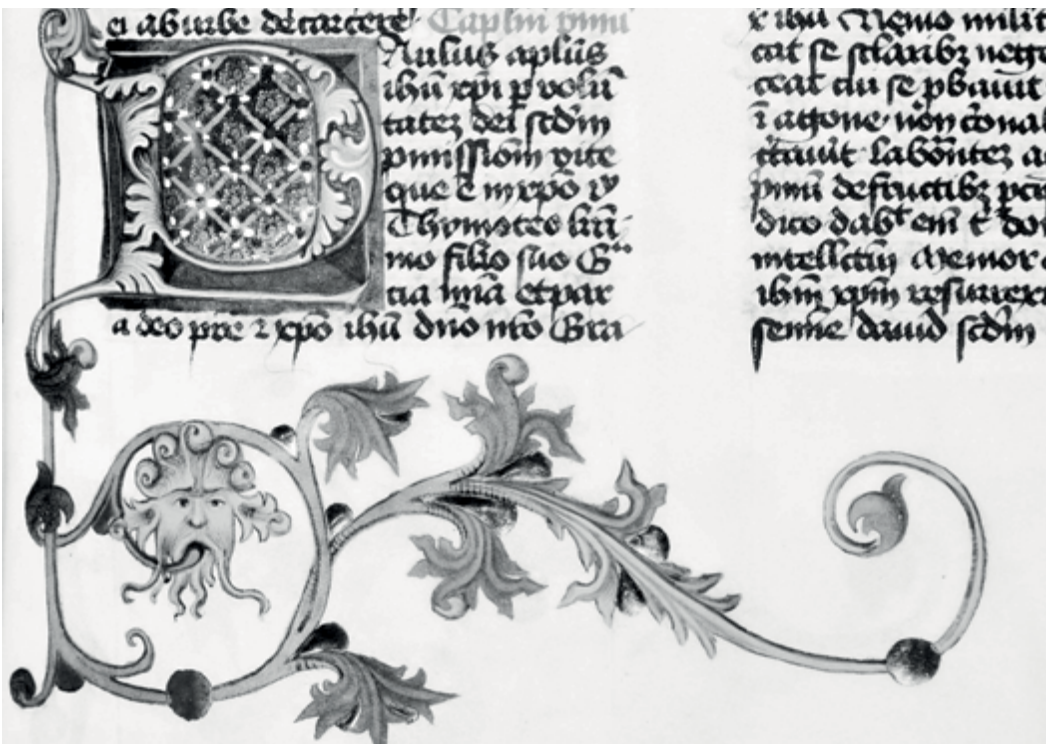 ei ab urbe de carcere Caplm pmu
Aulus aplus
ihu xpi p volu
tatez dei scdm
pmissiom vite
que e in xpo
Thymoteo kri
mo filio suo G
cia mia et pax
a deo pre z xpo ihu dno nro Gra
ihu Nemo milit
cat se sclaribz nego
ceat cui se pbauit
i agone non cona
labortez a
pmu de fructibz pci
dico dab em t do
intellctu Memor
ihm xpm resurrex
semie dauid scdm